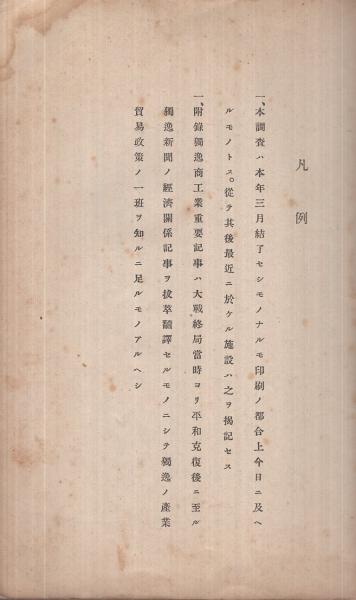 凡例
一、本調査ハ本年三月結了セシモノナルモ印刷ノ都合上今日ニ及ヘ
ルモノトス。從テ其後最近ニ於ケル施設ハ之ヲ揭記セス
一、附錄獨逸商工業重要記事ハ大戰終局當時ヨリ平和克復後ニ至ル
獨逸新聞ノ經濟關係記事ヲ拔萃飜譯セルモノニシテ獨逸ノ產業
貿易政策ノ一班ヲ知ルニ足ルモノアルヘシ